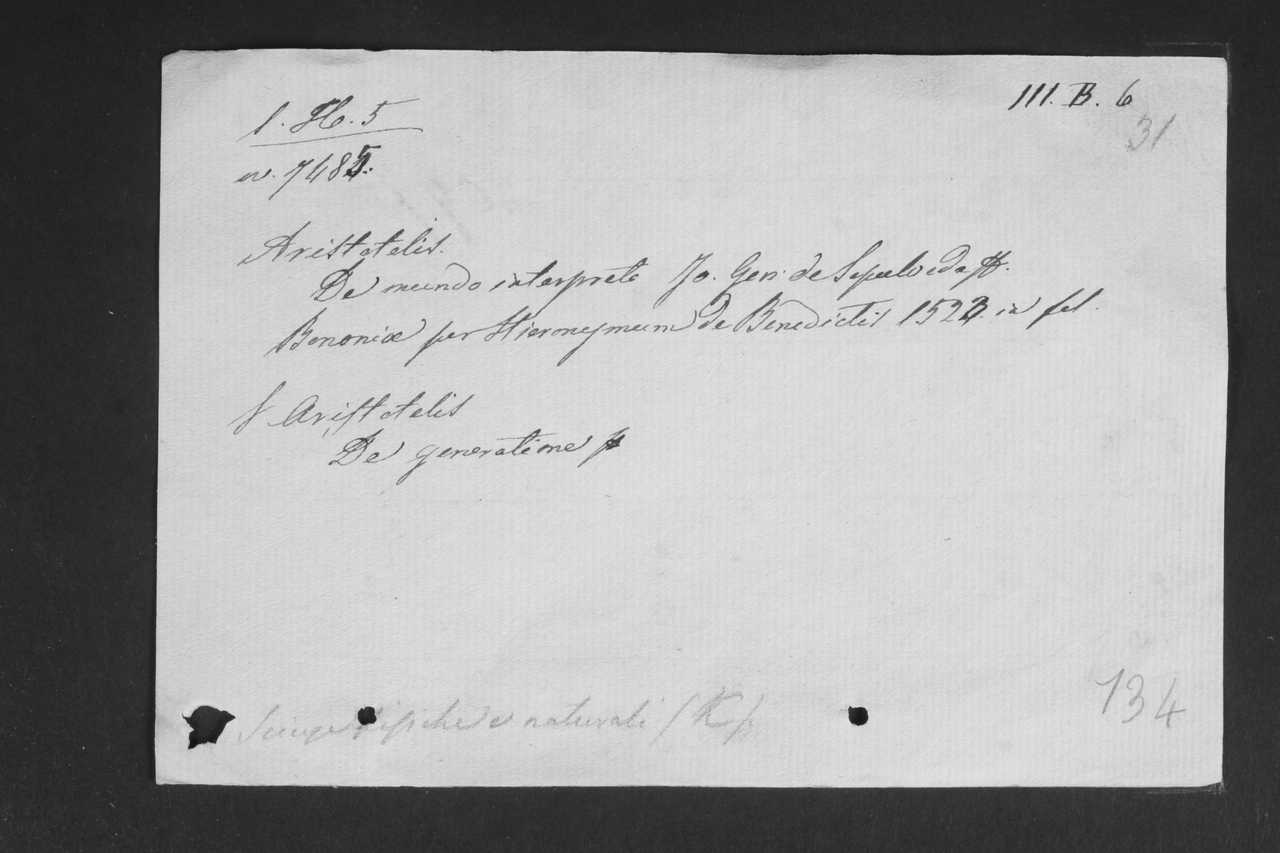 1. H. 5
III. B. 6
31
nr. 7485.
Aristotelis.
De mundo interprete Jo. Gen. de Sepulveda
Bononiæ per Hieronymum de Benedictis 1523. in fol.
Aristotelis
De generatione
fisiche e naturali (K)
134